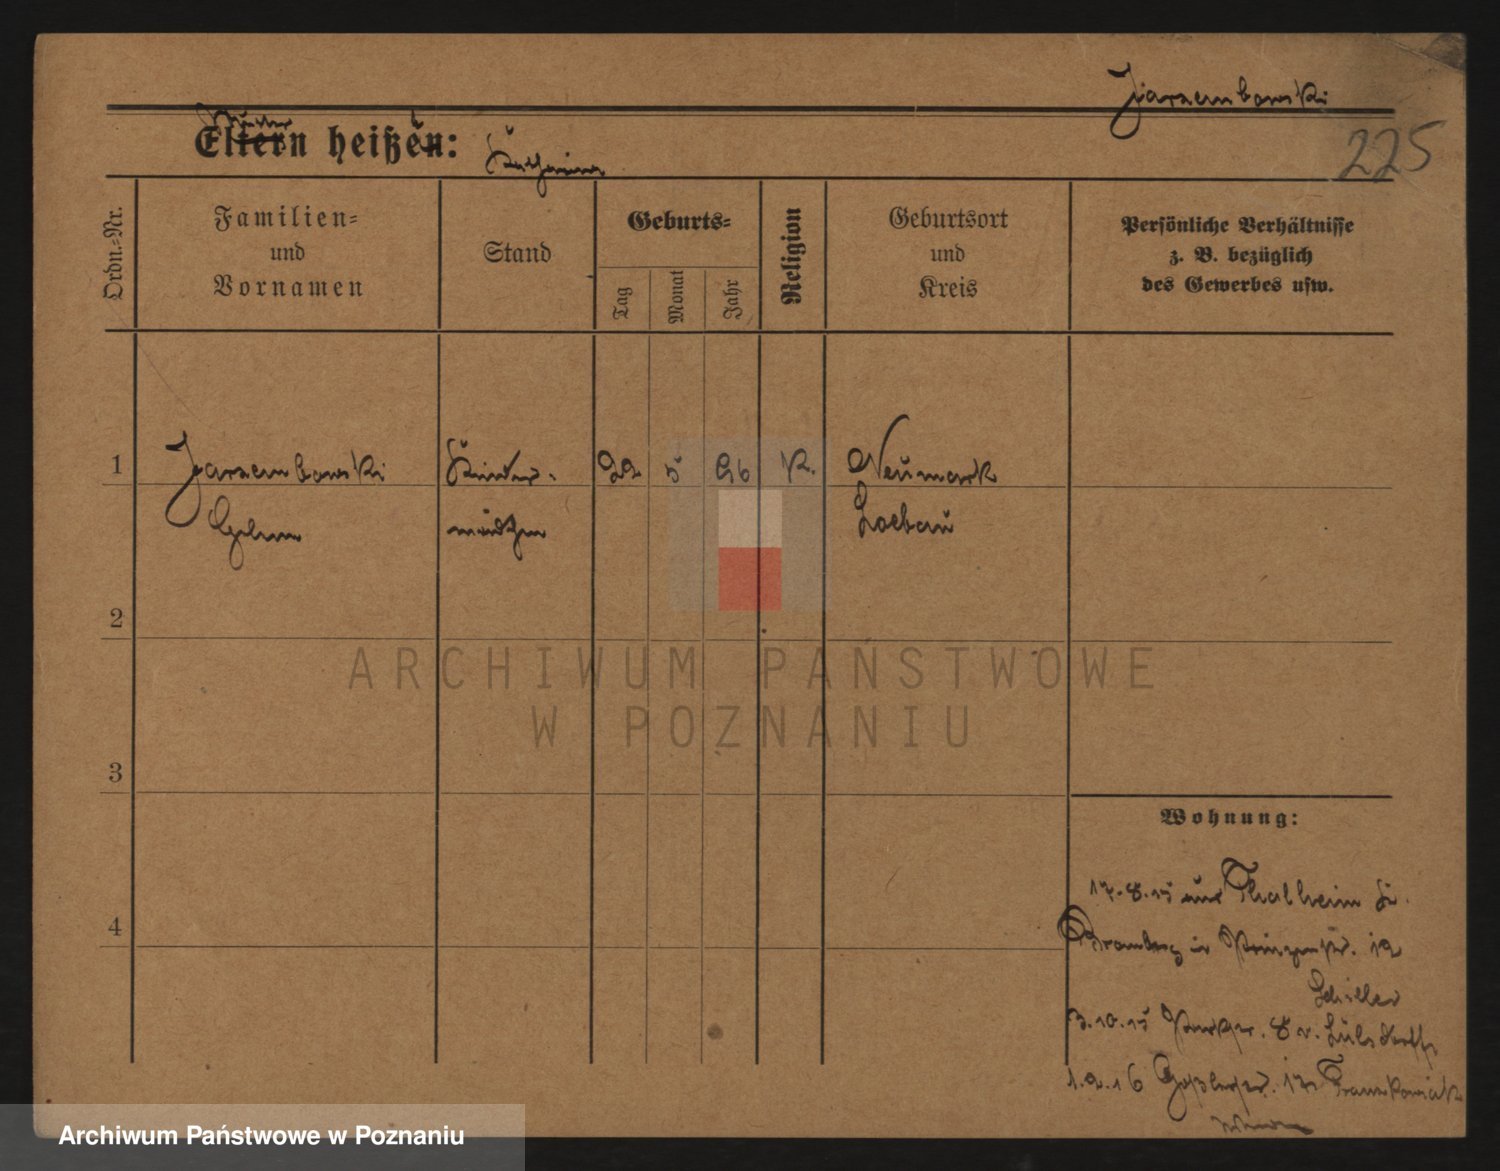 Jarzembowski
225
Mutter
Eltern heißen:
Ordn.-Nr.
Familien-
und
Vornamen
Stand
Geburts-
Tag
Monat
Jahr
Religion
Geburtsort
und
Kreis
Persönliche Verhältnisse
z. B. bezüglich
des Gewerbes usw.
1 Jarzembowski Kinder- 22 5 96 K. Neumark
mädchen Loebau
2
ARCHIWUM PAŃSTWOWE
W POZNANIU
3
Wohnung:
17.8.15 aus Thalheim
4
Bromberg in Prinzenstr. 12
Schiller
3.10.15 8 v.
1.2.16
Archiwum Państwowe w Poznaniu